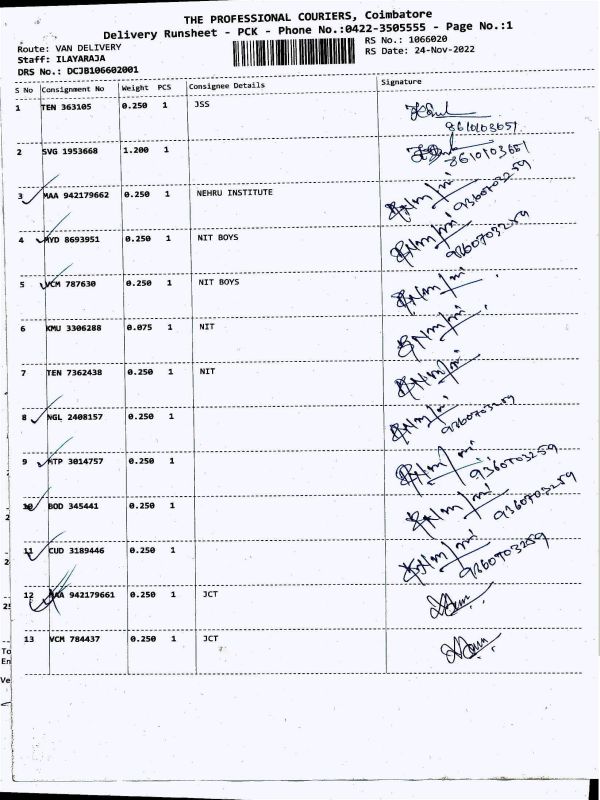 THE PROFESSIONAL COURIERS, Coimbatore
Delivery Runsheet - PCK - Phone No.:0422-3505555 - Page No.:1
Route: VAN DELIVERY
RS No.: 1066020
Staff: ILAYARAJA
RS Date: 24-Nov-2022
DRS No.: DCJB106602001
S No Consignment No Weight PCS Consignee Details Signature
1 TEN 363105 0.250 1 JSS
8610103651
2 SVG 1953668 1.200 1
8610103651
3 MAA 942179662 0.250 1 NEHRU INSTITUTE
9360703259
4 MYD 8693951 0.250 1 NIT BOYS
9360703259
5 VCM 787630 0.250 1 NIT BOYS
6 KMU 3306288 0.075 1 NIT
7 TEN 7362438 0.250 1 NIT
8 NGL 2408157 0.250 1
9360703259
9 MTP 3014757 0.250 1
9360703259
10 BOD 345441 0.250 1
9360703259
11 CUD 3189446 0.250 1
9360703259
12 MAA 942179661 0.250 1 JCT
13 VCM 784437 0.250 1 JCT